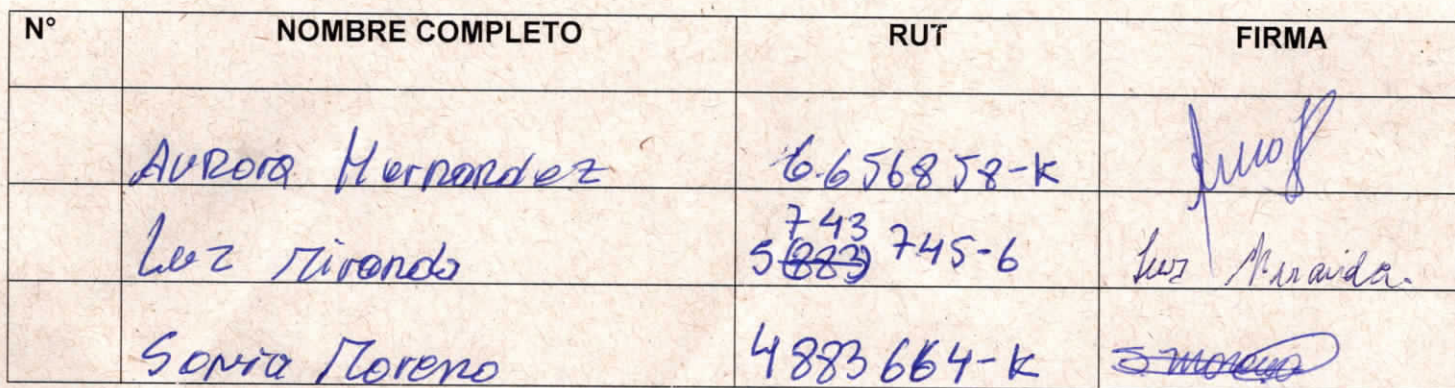 N° NOMBRE COMPLETO RUT FIRMA
Aurora Hernandez 6.656858-K
Luz Miranda 5 743 745-6 Luz Miranda.
Sonia Moreno 4883664-K S Moreno